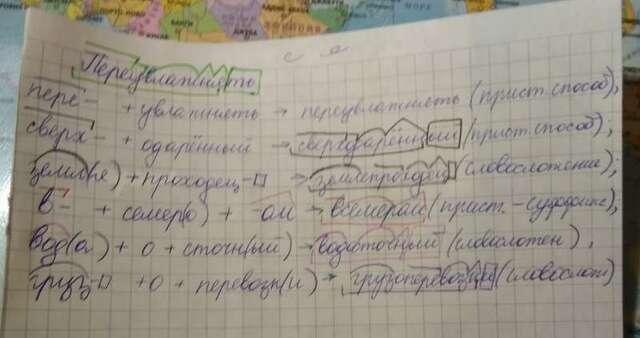 МОРЕ
с я
Переувлажнять
пере- + увлажнять → переувлажнять (прист. способ),
сверх- + одарённый → сверходарённый (прист. способ),
земл(я) + проходец → землепроходец (словосложение);
в- + семер(о) + -ом → всемером (прист.-суффикс),
вод(а) + о + сточн(ый) → водосточный (словосложен),
груз- + о + перевозк(и) → грузоперевозки (словослож)